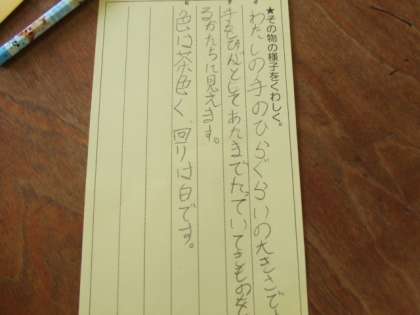 ★その物の様子をくわしく。
わたしの手のひらぐらいの大きさで
してあたまでたっていて
るかたちに見えます。
色は茶色く、回りは白です。